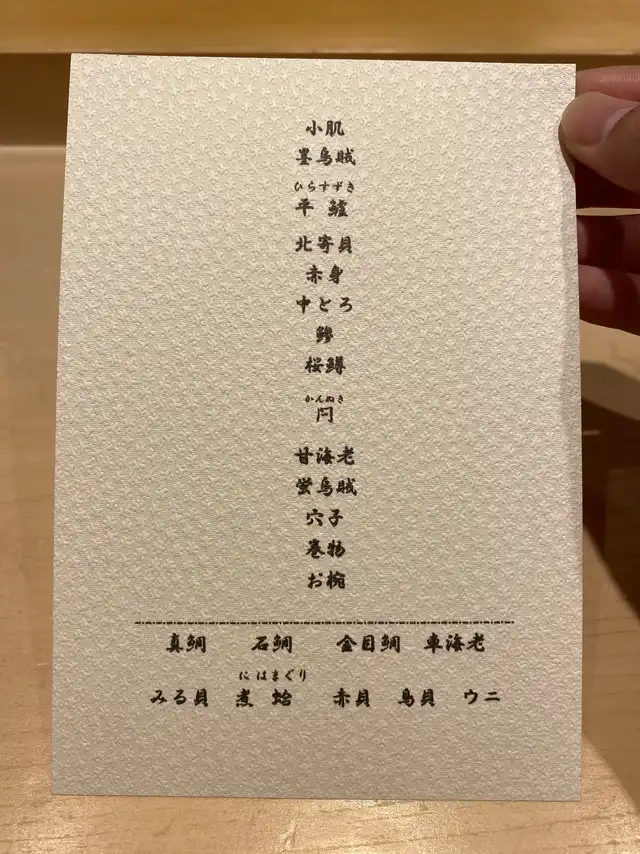 小肌
墨烏賊
ひらすずき
平 鱸
北寄貝
赤身
中とろ
鯵
桜鱒
かんぬき
閂
甘海老
蛍烏賊
穴子
巻物
お椀
真鯛 石鯛 金目鯛 車海老
にはまぐり
みる貝 煮 蛤 赤貝 鳥貝 ウニ